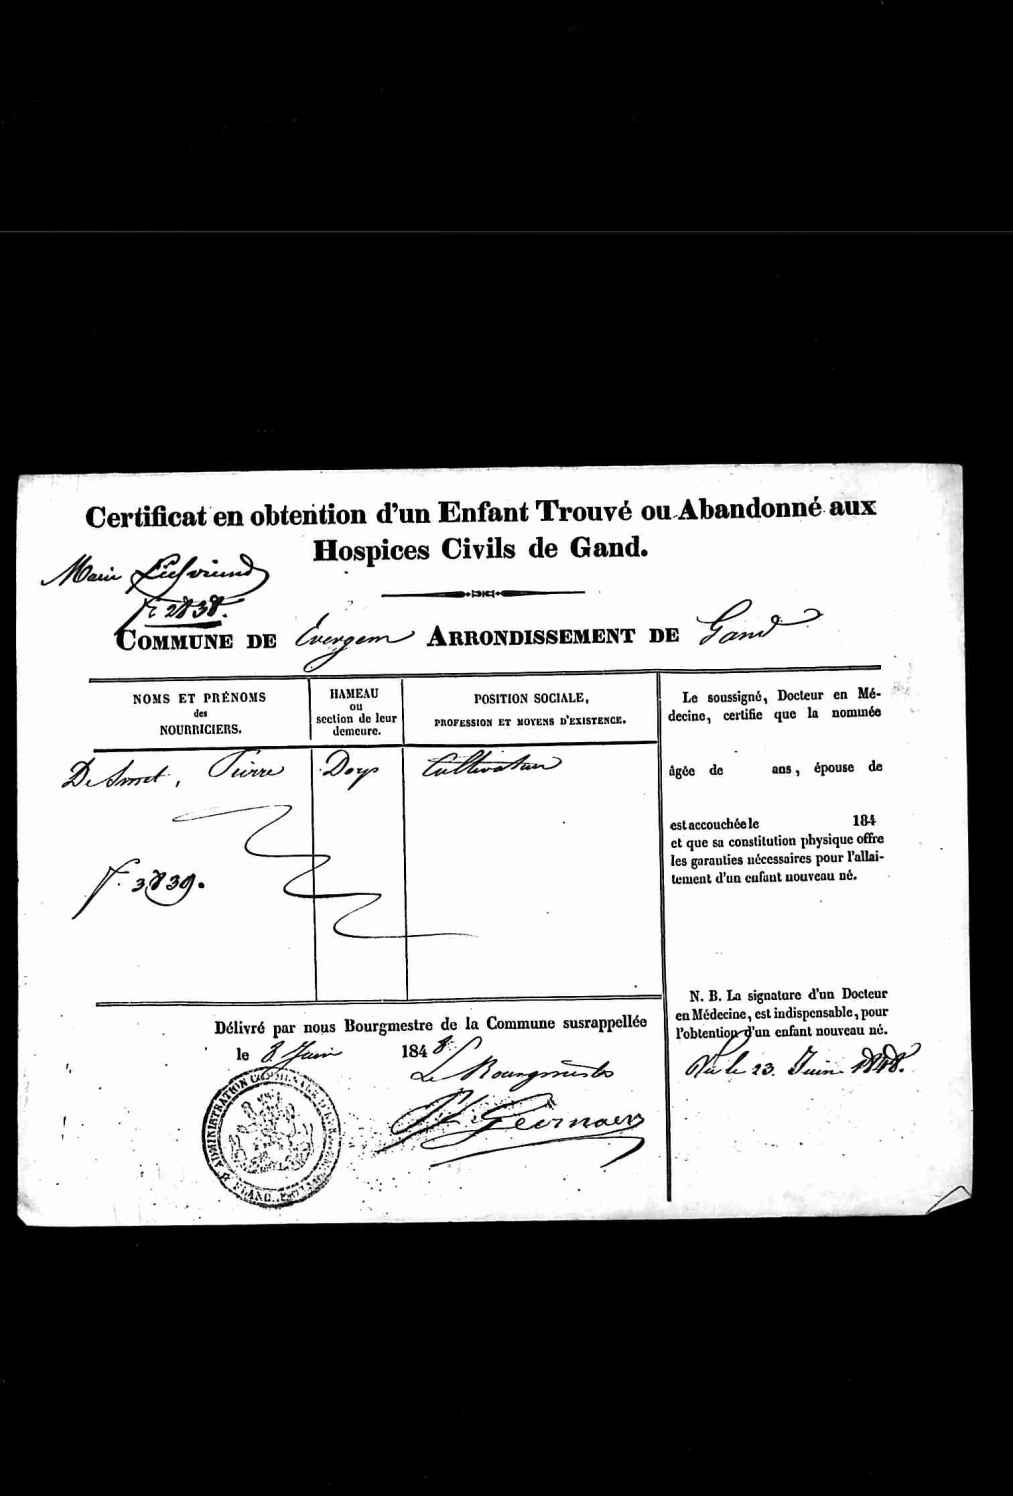 Certificat en obtention d'un Enfant Trouvé ou Abandonné aux
Hospices Civils de Gand.
Marie Liefvriend
fr 2838.
COMMUNE DE Evergem ARRONDISSEMENT DE Gand
NOMS ET PRÉNOMS
des
NOURRICIERS.
HAMEAU
ou
section de leur
demeure.
POSITION SOCIALE,
PROFESSION ET MOYENS D'EXISTENCE.
De Smet, Pierre
Dorp
Cultivateur
f. 3839.
Le soussigné, Docteur en Mé-
decine, certifie que la nommée
âgée de ans, épouse de
est accouchée le 184
et que sa constitution physique offre
les garanties nécessaires pour l'allai-
tement d'un enfant nouveau né.
N. B. La signature d'un Docteur
en Médecine, est indispensable, pour
l'obtention d'un enfant nouveau né.
Vu le 23. Juin 1848.
Délivré par nous Bourgmestre de la Commune susrappellée
le 8 Juin 1848.
Le Bourgmestre
Geirnaer
ADMINISTRATION